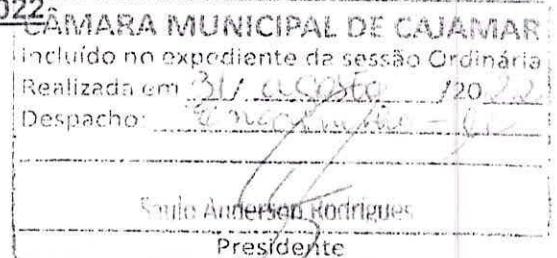 022
CÂMARA MUNICIPAL DE CAJAMAR
Incluído no expediente da sessão Ordinária
Realizada em 31/ agosto /2022
Despacho: Encaminha-se
Saulo Anderson Rodrigues
Presidente